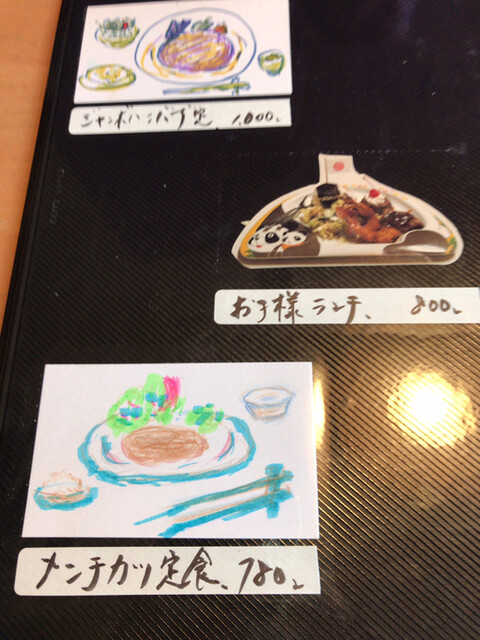 ジャンボハンバーグ定 1,000-
お子様ランチ、 800-
メンチカツ定食、780-